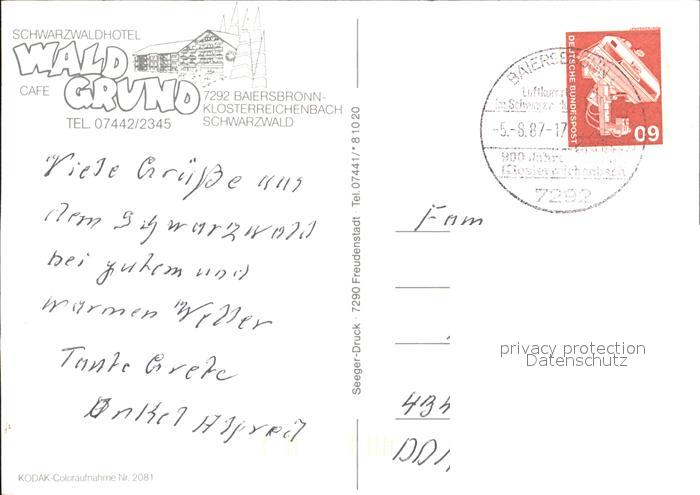 SCHWARZWALDHOTEL
WALD
GRUND
CAFE
7292 BAIERSBRONN-
KLOSTERREICHENBACH
SCHWARZWALD
TEL. 07442/2345
Viele Grüße aus
dem Schwarzwald
bei gutem und
warmen Wetter
Tante Grete
Onkel Alfred
KODAK-Coloraufnahme Nr. 2081
Seeger-Druck · 7290 Freudenstadt · Tel. 07441/*81020
BAIERSBRONN
Luftkurort
im Schwarzwald
-5.-9.87-17
900 Jahre
Klosterreichenbach
7292
DEUTSCHE BUNDESPOST
60
Fam
434
DDR
privacy protection
Datenschutz